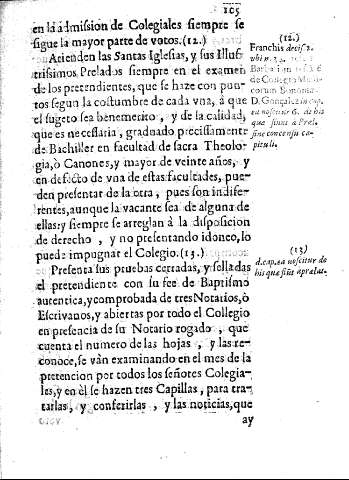 105
en la admission de Colegiales siempre se
sigue la mayor parte de votos.(12.)
Atienden las Santas Iglesias, y sus Illus
trissimos Prelados siempre en el examen
de los pretendientes, que se haze con pun-
tos segun la costumbre de cada vna, à que
el sugeto sea benemerito, y de la calidad,
que es necessaria, graduado precissamente
de Bachiller en facultad de sacra Theolo-
gia, ò Canones, y mayor de veinte años, y
en defecto de vna de estas facultades, pue-
den presentar de la otra, pues son indife-
rentes, aunque la vacante sea de alguna de
ellas: y siempre se arreglan à la disposicion
de derecho, y no presentando idoneo, lo
puede impugnar el Colegio.(13.)
Presenta sus pruebas cerradas, y selladas
el pretendiente con su fee de Baptismo
autentica, y comprobada de tres Notarios, ò
Escrivanos, y abiertas por todo el Collegio
en presencia de su Notario rogado, que
cuenta el numero de las hojas, y las re-
conoce, se vàn examinando en el mes de la
pretencion por todos los señores Colegia-
les, y en èl se hazen tres Capillas, para tra-
tarlas, y conferirlas, y las noticias, que
ay
(12.)
Franchis decis. 2.
ubi n. 2.
de Collegio
corum Bononia
D. Gonçalez in cap.
ea noscitur 6. de his
que fiunt à Prel.
sine consensu ca-
pituli.
(13)
d. cap. ea noscitur de
his que fiūt a prælat.